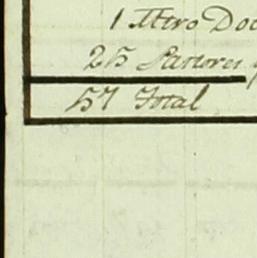 1 Mtro Doc
25 Pastores
57 Total